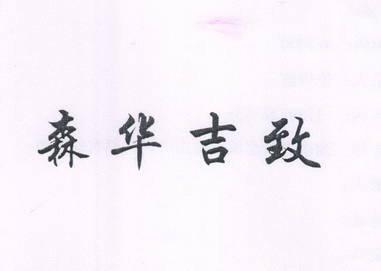 森华吉致